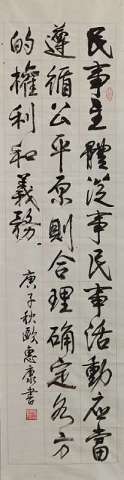 民事主體從事民事活動应當
遵循公平原則合理确定各方
的權利和義務
庚子秋歐惠康書